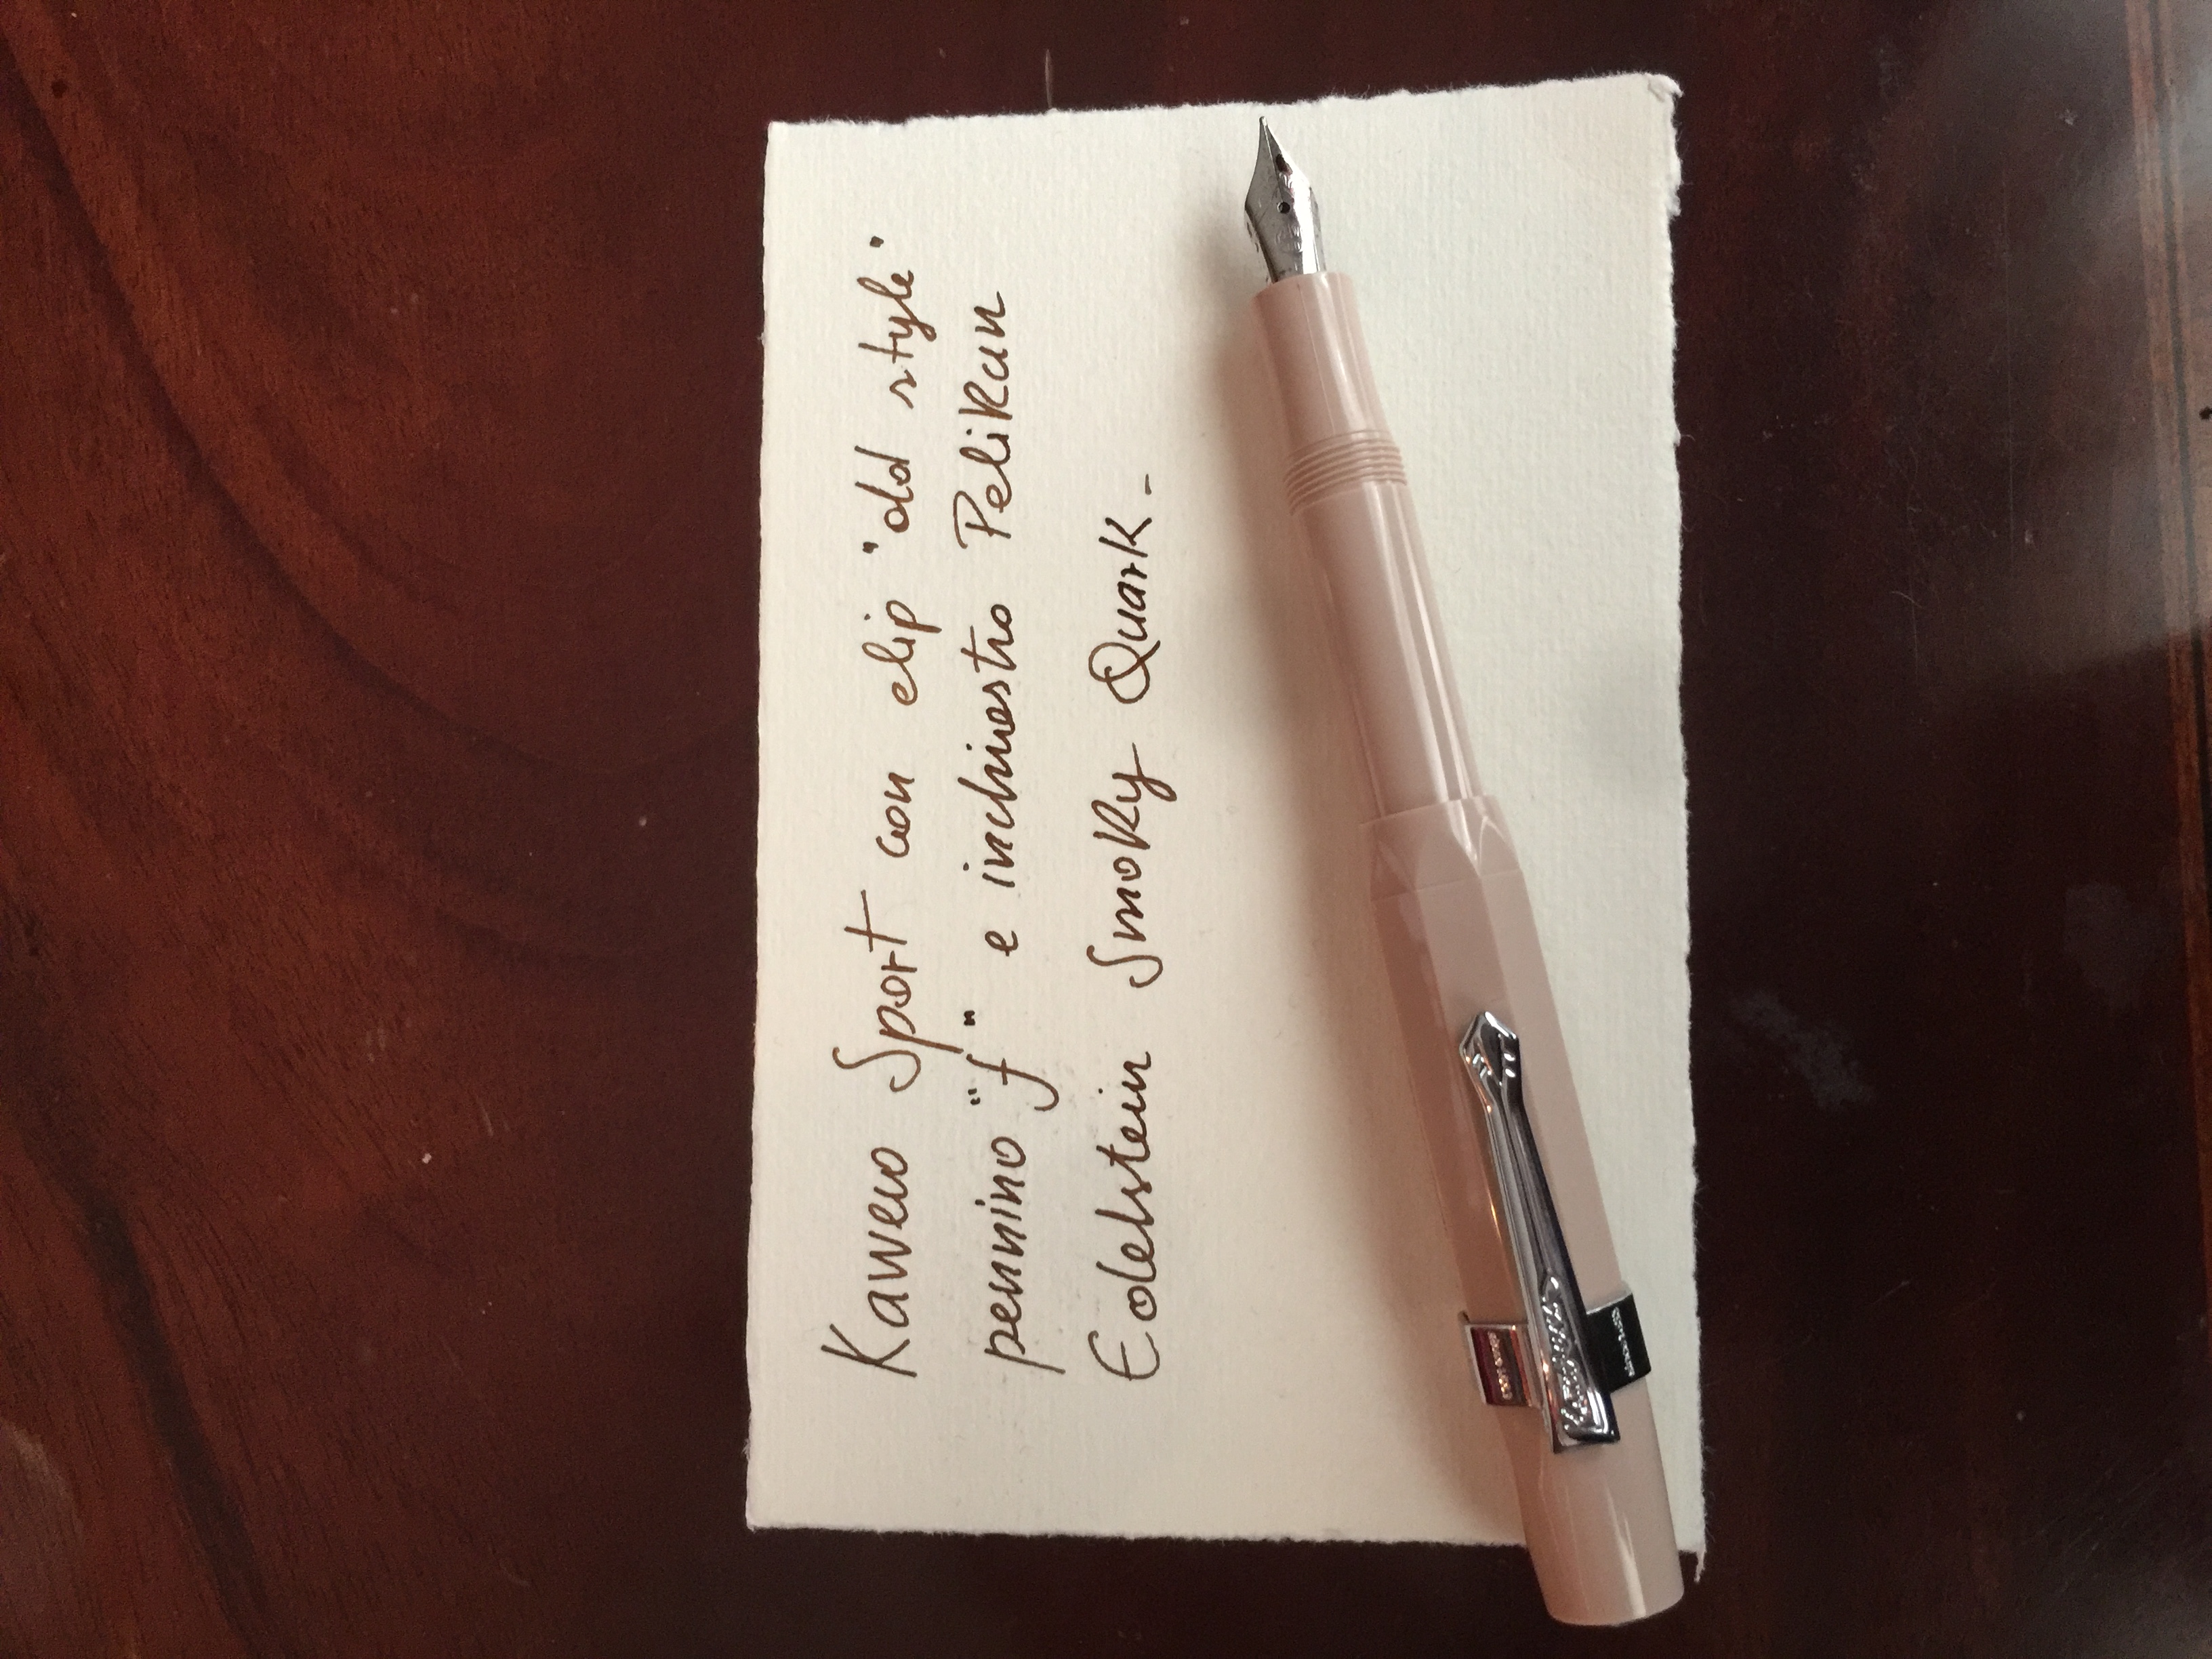 Kaweco Sport con clip "old style"
pennino "f" e inchiostro Pelikan
Edelstein Smoky Quark.
Kaweco